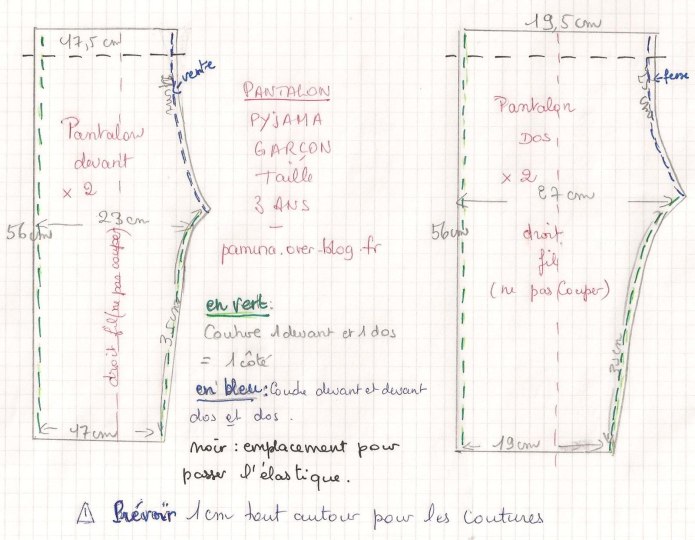 17,5 cm
ventre
Pantalon
devant
x 2
23 cm
56 cm
droit fil (ne pas couper)
35 cm
17 cm
PANTALON
PYJAMA
GARÇON
Taille
3 ANS
pamina.over-blog.fr
en vert:
Couture 1 devant et 1 dos
= 1 côté
en bleu: Coudre devant et devant
dos et dos.
noir : emplacement pour
passer l'élastique.
19,5 cm
Pantalon
DOS
x 2
27 cm
56 cm
droit
fil
(ne pas Couper)
19 cm
⚠ Prévoir 1 cm tout autour pour les coutures